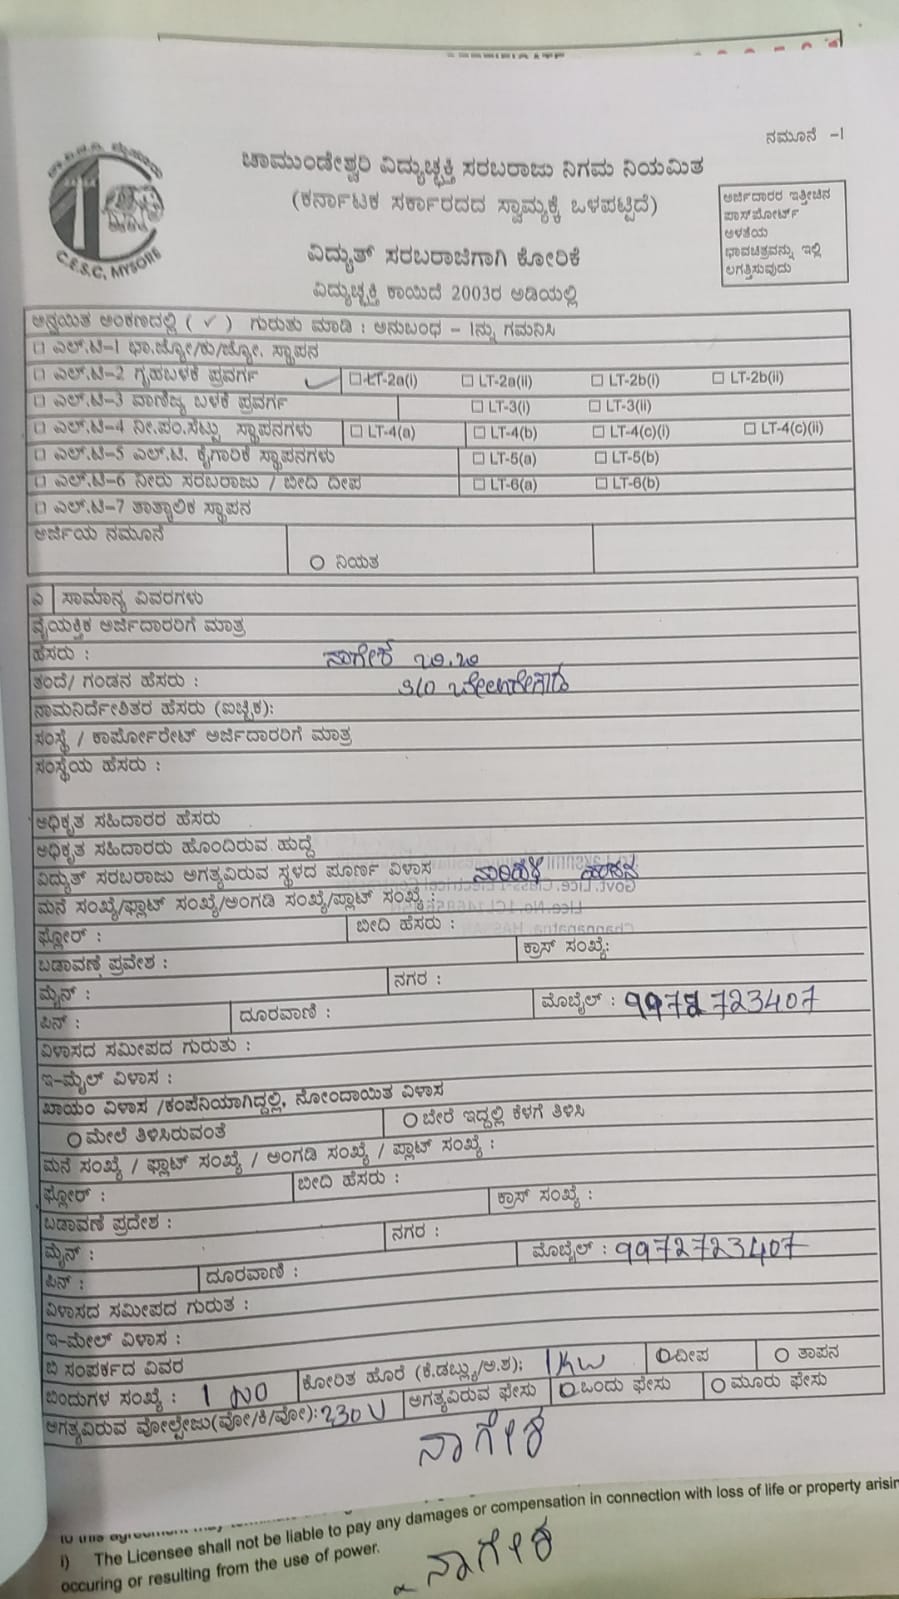 ನಮೂನೆ -I
C.E.S.C, MYSORE
ಚಾಮುಂಡೇಶ್ವರಿ ವಿದ್ಯುಚ್ಛಕ್ತಿ ಸರಬರಾಜು ನಿಗಮ ನಿಯಮಿತ
(ಕರ್ನಾಟಕ ಸರ್ಕಾರದದ ಸ್ವಾಮ್ಯಕ್ಕೆ ಒಳಪಟ್ಟಿದೆ)
ಅರ್ಜಿದಾರರ ಇತ್ತೀಚಿನ
ಪಾಸ್‌ಪೋರ್ಟ್
ಅಳತೆಯ
ಭಾವಚಿತ್ರವನ್ನು ಇಲ್ಲಿ
ಲಗತ್ತಿಸುವುದು
ವಿದ್ಯುತ್ ಸರಬರಾಜಿಗಾಗಿ ಕೋರಿಕೆ
ವಿದ್ಯುಚ್ಛಕ್ತಿ ಕಾಯಿದೆ 2003ರ ಅಡಿಯಲ್ಲಿ
ಅನ್ವಯಿತ ಅಂಕಣದಲ್ಲಿ ( ✓ ) ಗುರುತು ಮಾಡಿ : ಅನುಬಂಧ – Iನ್ನು ಗಮನಿಸಿ
ಎಲ್.ಟಿ–1 ಭಾ.ಜ್ಯೋ/ಕು/ಜ್ಯೋ. ಸ್ಥಾಪನ
ಎಲ್.ಟಿ–2 ಗೃಹಬಳಕೆ ಪ್ರವರ್ಗ LT-2a(i) LT-2a(ii) LT-2b(i) LT-2b(ii)
ಎಲ್.ಟಿ–3 ವಾಣಿಜ್ಯ ಬಳಕೆ ಪ್ರವರ್ಗ LT-3(i) LT-3(ii)
ಎಲ್.ಟಿ–4 ನೀ.ಪಂ.ಸೆಟ್ಟು ಸ್ಥಾಪನಗಳು LT-4(a) LT-4(b) LT-4(c)(i) LT-4(c)(ii)
ಎಲ್.ಟಿ–5 ಎಲ್.ಟಿ. ಕೈಗಾರಿಕೆ ಸ್ಥಾಪನಗಳು LT-5(a) LT-5(b)
ಎಲ್.ಟಿ–6 ನೀರು ಸರಬರಾಜು / ಬೀದಿ ದೀಪ LT-6(a) LT-6(b)
ಎಲ್.ಟಿ–7 ತಾತ್ಕಾಲಿಕ ಸ್ಥಾಪನ
ಅರ್ಜಿಯ ನಮೂನೆ
ನಿಯತ
ಎ ಸಾಮಾನ್ಯ ವಿವರಗಳು
ವೈಯಕ್ತಿಕ ಅರ್ಜಿದಾರರಿಗೆ ಮಾತ್ರ
ಹೆಸರು : ನಾಗೇಶ ಬಿ.ಬಿ
ತಂದೆ/ ಗಂಡನ ಹೆಸರು : S/O
ನಾಮನಿರ್ದೇಶಿತರ ಹೆಸರು (ಐಚ್ಛಿಕ):
ಸಂಸ್ಥೆ / ಕಾರ್ಪೋರೇಟ್ ಅರ್ಜಿದಾರರಿಗೆ ಮಾತ್ರ
ಸಂಸ್ಥೆಯ ಹೆಸರು :
ಅಧಿಕೃತ ಸಹಿದಾರರ ಹೆಸರು
ಅಧಿಕೃತ ಸಹಿದಾರರು ಹೊಂದಿರುವ ಹುದ್ದೆ
ವಿದ್ಯುತ್ ಸರಬರಾಜು ಅಗತ್ಯವಿರುವ ಸ್ಥಳದ ಪೂರ್ಣ ವಿಳಾಸ
ಮನೆ ಸಂಖ್ಯೆ/ಫ್ಲಾಟ್ ಸಂಖ್ಯೆ/ಅಂಗಡಿ ಸಂಖ್ಯೆ/ಪ್ಲಾಟ್ ಸಂಖ್ಯೆ :
ಫ್ಲೋರ್ : ಬೀದಿ ಹೆಸರು :
ಬಡಾವಣೆ ಪ್ರವೇಶ : ಕ್ರಾಸ್ ಸಂಖ್ಯೆ:
ಮೈನ್ : ನಗರ :
ಪಿನ್ : ದೂರವಾಣಿ : ಮೊಬೈಲ್ : 9972723407
ವಿಳಾಸದ ಸಮೀಪದ ಗುರುತು :
ಇ–ಮೈಲ್ ವಿಳಾಸ :
ಖಾಯಂ ವಿಳಾಸ /ಕಂಪೆನಿಯಾಗಿದ್ದಲ್ಲಿ, ನೋಂದಾಯಿತ ವಿಳಾಸ
ಮೇಲೆ ತಿಳಿಸಿರುವಂತೆ ಬೇರೆ ಇದ್ದಲ್ಲಿ ಕೆಳಗೆ ತಿಳಿಸಿ
ಮನೆ ಸಂಖ್ಯೆ / ಫ್ಲಾಟ್ ಸಂಖ್ಯೆ / ಅಂಗಡಿ ಸಂಖ್ಯೆ / ಪ್ಲಾಟ್ ಸಂಖ್ಯೆ :
ಫ್ಲೋರ್ : ಬೀದಿ ಹೆಸರು :
ಬಡಾವಣೆ ಪ್ರದೇಶ : ಕ್ರಾಸ್ ಸಂಖ್ಯೆ :
ಮೈನ್ : ನಗರ :
ಪಿನ್ : ದೂರವಾಣಿ : ಮೊಬೈಲ್ : 9972723407
ವಿಳಾಸದ ಸಮೀಪದ ಗುರುತ :
ಇ–ಮೇಲ್ ವಿಳಾಸ :
ಬಿ ಸಂಪರ್ಕದ ವಿವರ
ಬಿಂದುಗಳ ಸಂಖ್ಯೆ : 1 NO ಕೋರಿತ ಹೊರೆ (ಕೆ.ಡಬ್ಲ್ಯು/ಅ.ಶ): 1KW ದೀಪ ತಾಪನ
ಅಗತ್ಯವಿರುವ ವೋಲ್ಟೇಜು(ವೋ/ಕಿ/ವೋ):230V ಅಗತ್ಯವಿರುವ ಫೇಸು ಒಂದು ಫೇಸು ಮೂರು ಫೇಸು
ನಾಗೇಶ
i) The Licensee shall not be liable to pay any damages or compensation in connection with loss of life or property arisin
occuring or resulting from the use of power.
ನಾಗೇಶ